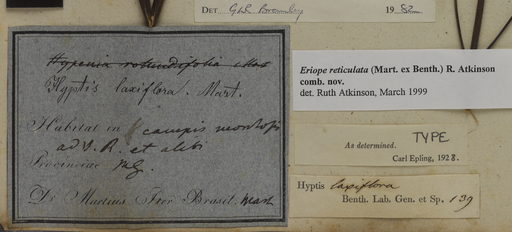 DET 1982
Eriope reticulata (Mart. ex Benth.) R. Atkinson
comb. nov.
det. Ruth Atkinson, March 1999
Hypenia rotundifolia
Hyptis laxiflora. Mart.
Habitat in campis
ad V. R. et alibi
Provinciae MG.
Dr Martius Iter Brasil. Mart
TYPE
As determined.
Carl Epling, 1928.
Hyptis laxiflora
Benth. Lab. Gen. et Sp. 139